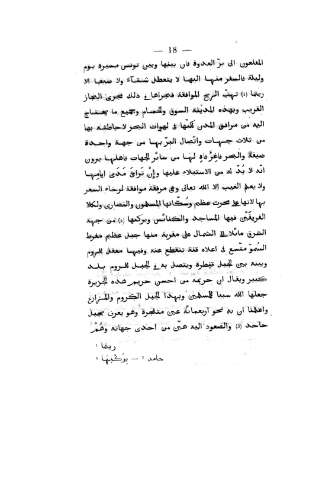 — 18 —
المقلعون الى برّ العدوة فان بينها وبين تونس مسيرة يوم
وليلة فالسفر منها اليها لا يتعطل شتاء ولا صيفا الا
ريثما (a) تهبّ الريح الموافقة فمجراها في ذلك مجرى المجاز
القريب وبهذه المدينة السوق والحمّام وجميع ما يحتاج
اليه من مرافق المدن لكنها في لهوات البحر لاحاطته بها
من ثلاث جهات واتصال البرّ بها من جهة واحدة
ضيقة والبحر فاغر فاه لها من سائر الجهات فاهلها يرون
انه لا بدّ له من الاستيلاء عليها وان تراخى مدى ايامها
ولا يعلم الغيب الا الله تعالى وهي مرفقة موافقة لرخاء السعر
بها لانها على محرث عظيم وسكّانها المسلمون والنصارى ولكلا
الفريقين فيها المساجد والكنائس وبركنها (b) من جهة
الشرق مائلا الى الشمال على مقربة منها جبل عظيم مفرط
السموّ متّسع في اعلاه قنّة تنقطع عنه وفيها معقل للروم
وبينه وبين الجبل قنطرة ويتصل به في الجبل للروم بلد
كبير ويقال ان حريمه من احسن حريم هذه الجزيرة
جعلها الله سبيا للمسلمين وبهذا الجبل الكروم والمزارع
واعلمنا ان به نحو اربعمائة عين متفجرة وهو يعرف بجبل
حامد (c) والصعود اليه هيّن من احدى جهاته وهُم
ريثا a
حامد c — بركبها b